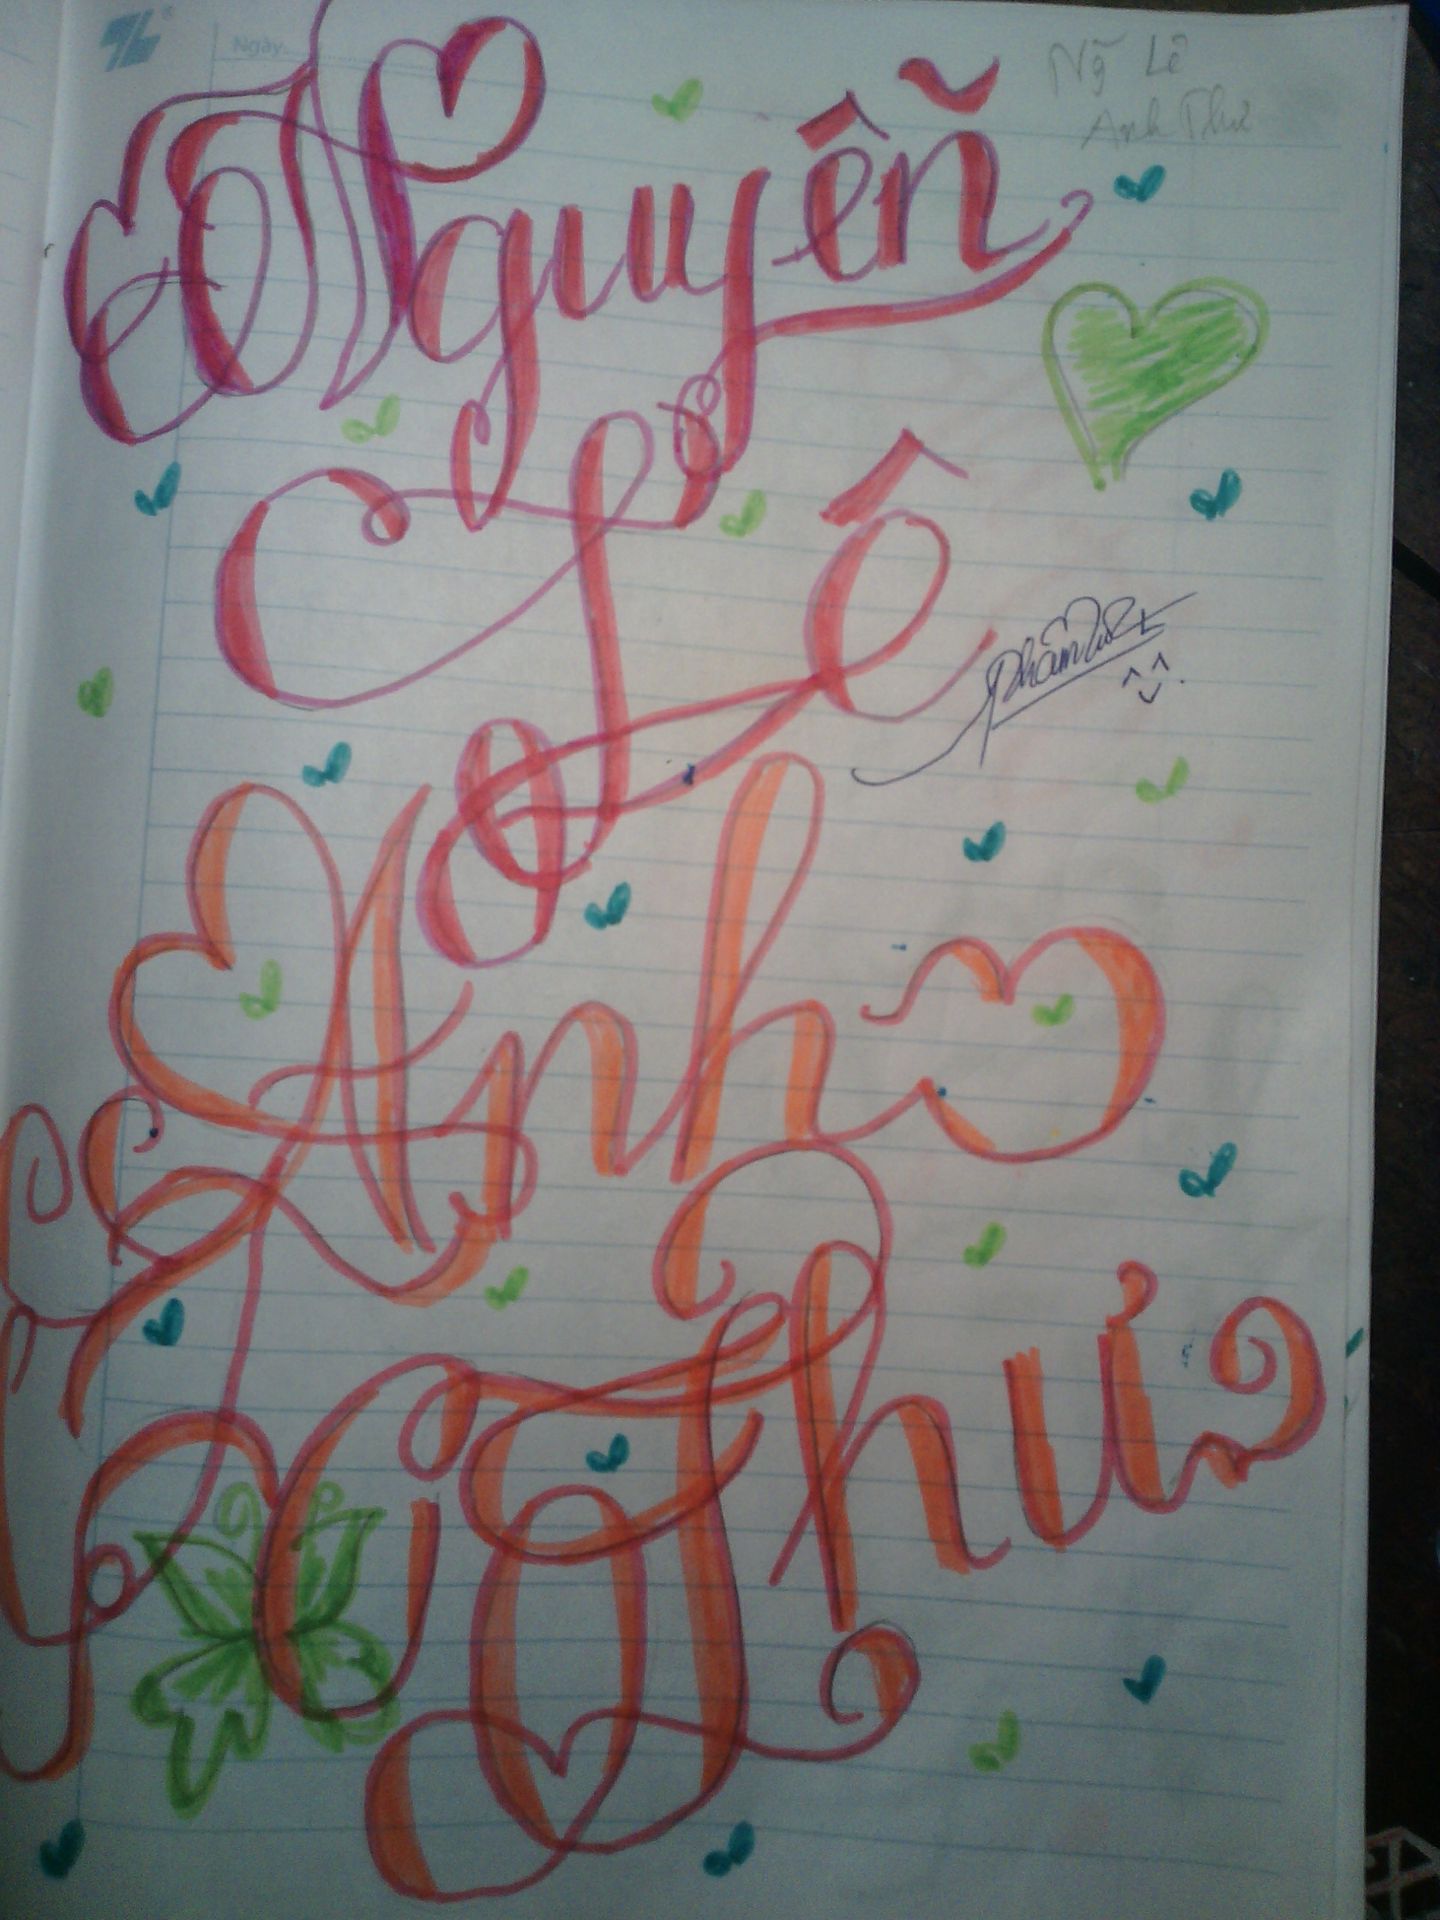 Ngày
Ng̃ Lê
Anh Thư
Nguyễn
Lê
Anh
Thư